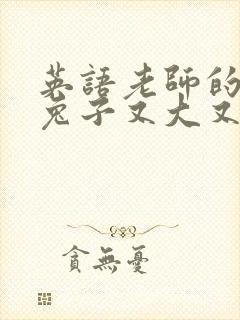 英語老師的
兔子又大又
貪無憂